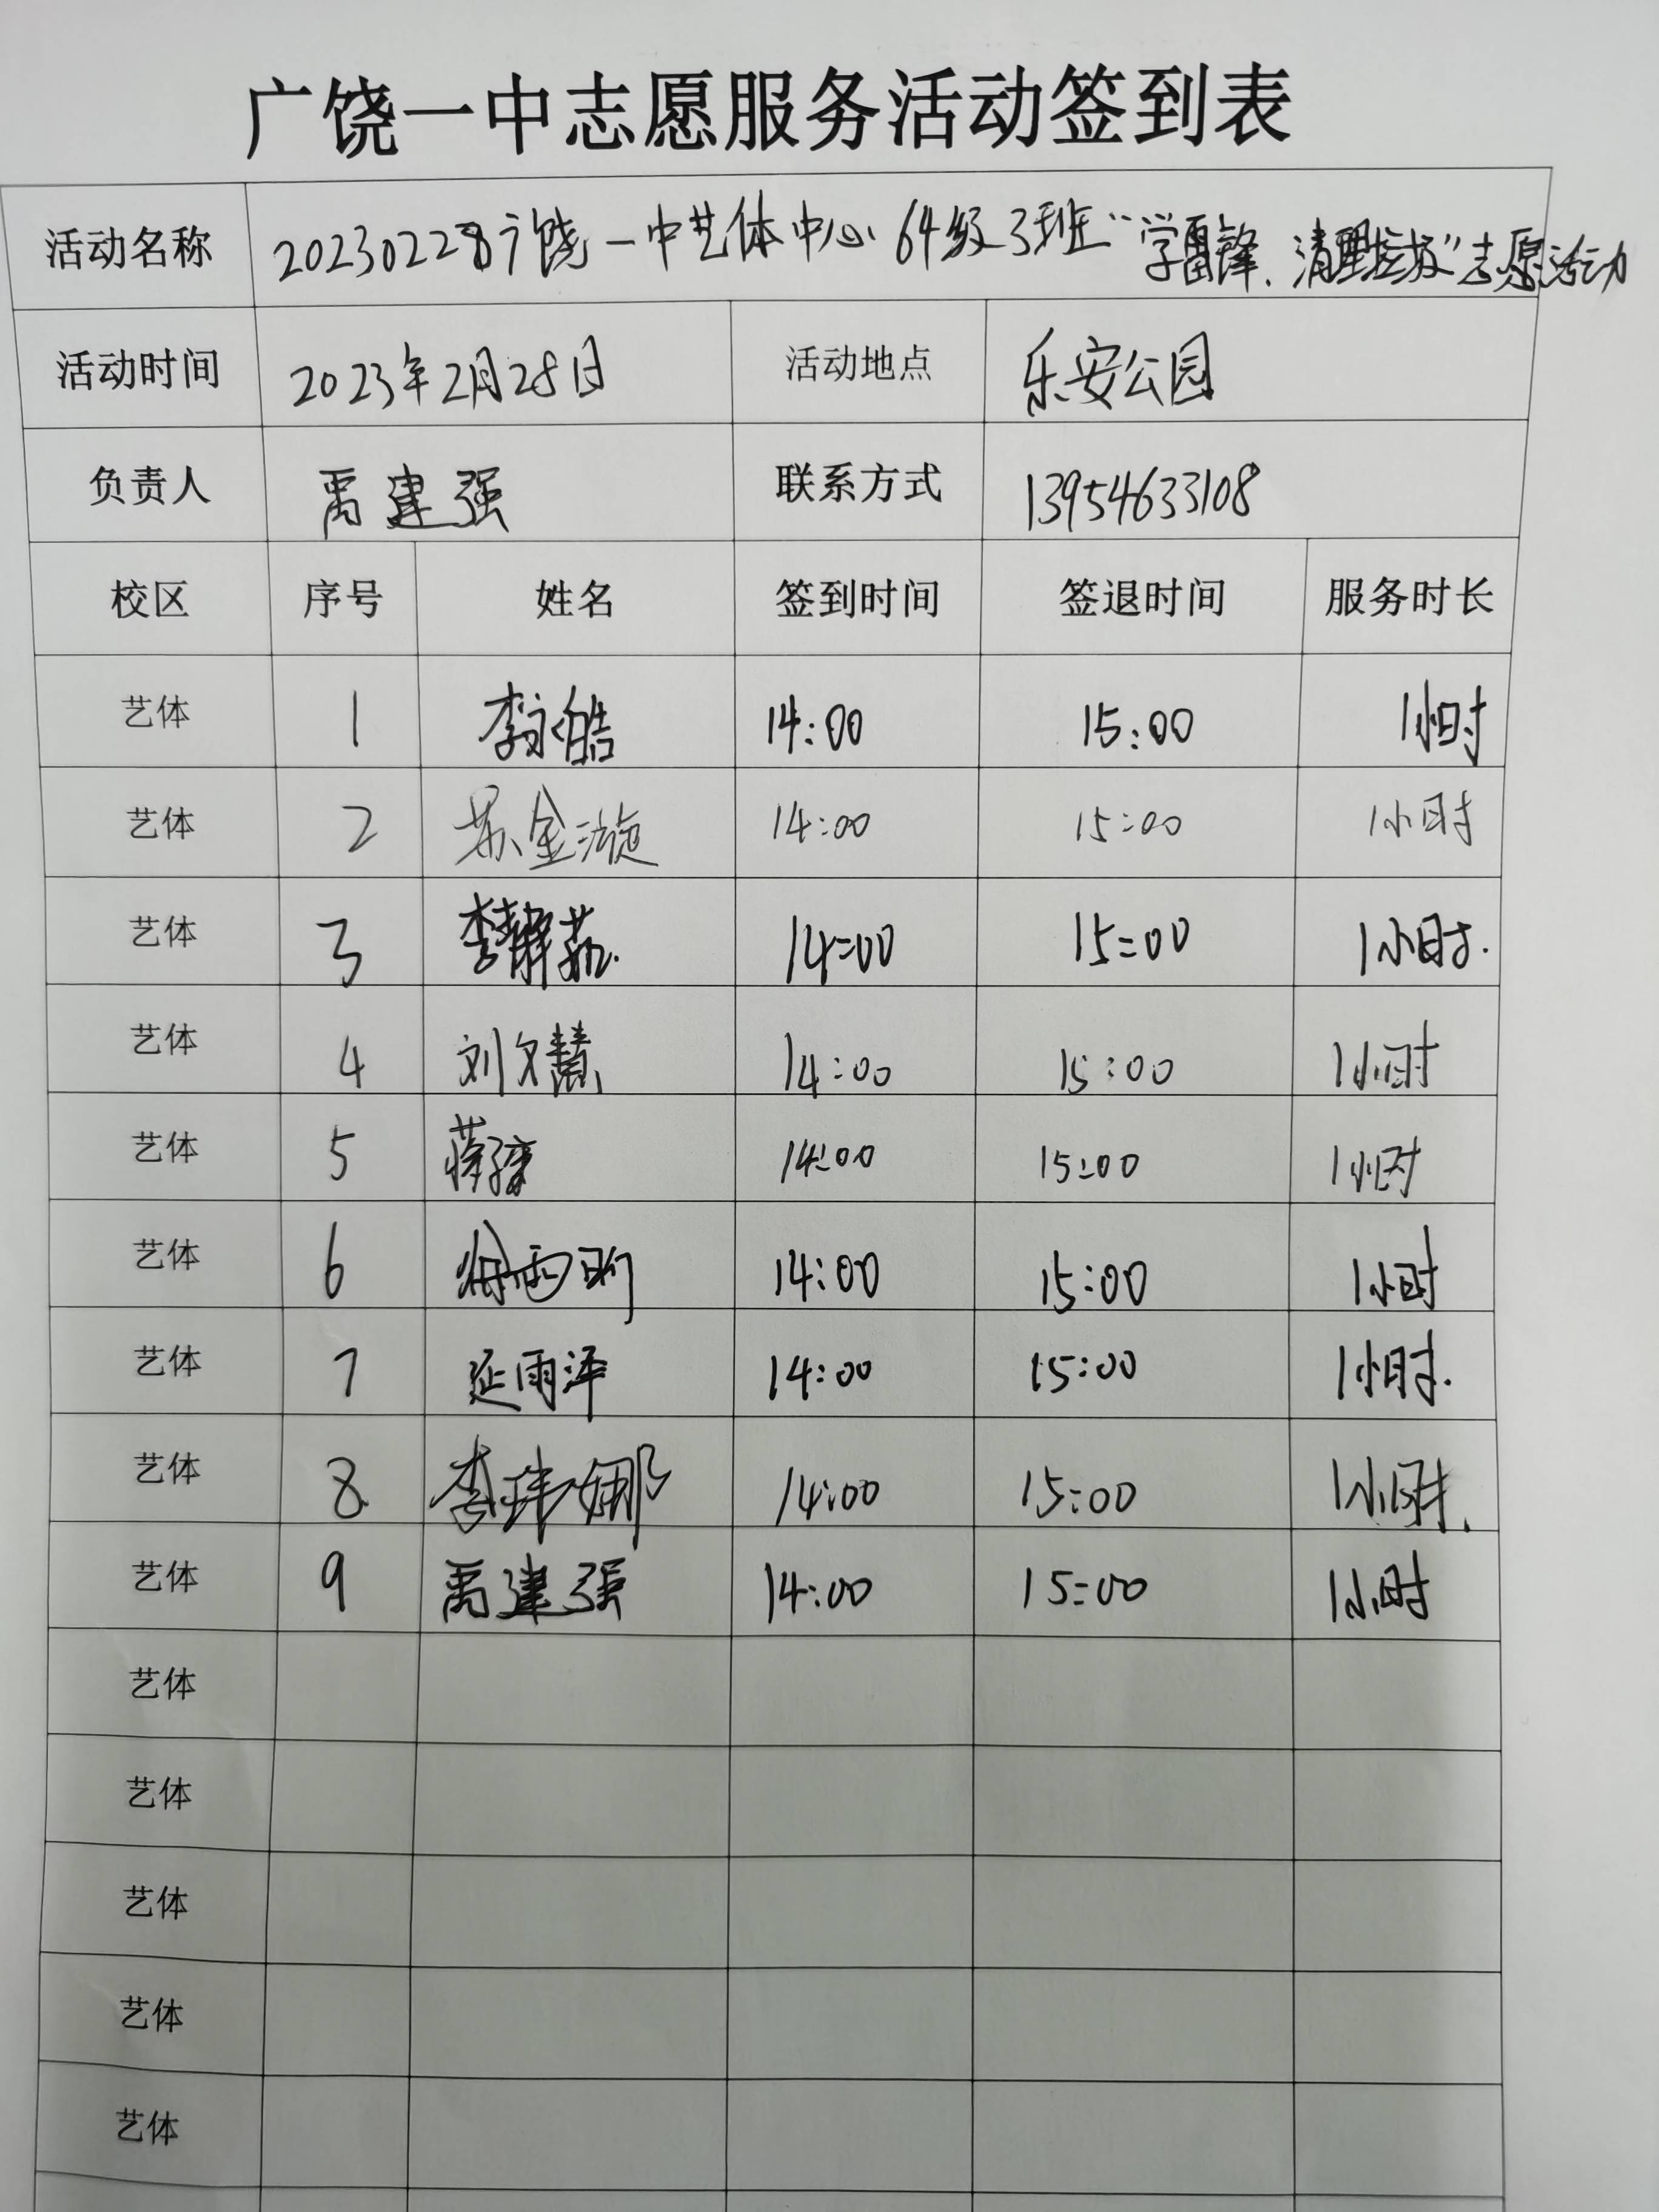 广饶一中志愿服务活动签到表
活动名称 20230228广饶一中艺体中心64级3班“学雷锋、清理垃圾”志愿活动
活动时间 2023年2月28日 活动地点 乐安公园
负责人 禹建强 联系方式 13954633108
校区 序号 姓名 签到时间 签退时间 服务时长
艺体 1 李永皓 14:00 15:00 1小时
艺体 2 苏金漩 14:00 15:00 1小时
艺体 3 李静茹 14:00 15:00 1小时.
艺体 4 刘文慧 14:00 15:00 1小时
艺体 5 14:00 15:00 1小时
艺体 6 14:00 15:00 1小时
艺体 7 延雨泽 14:00 15:00 1小时.
艺体 8 李玮娜 14:00 15:00 1小时.
艺体 9 禹建强 14:00 15:00 1小时
艺体
艺体
艺体
艺体
艺体